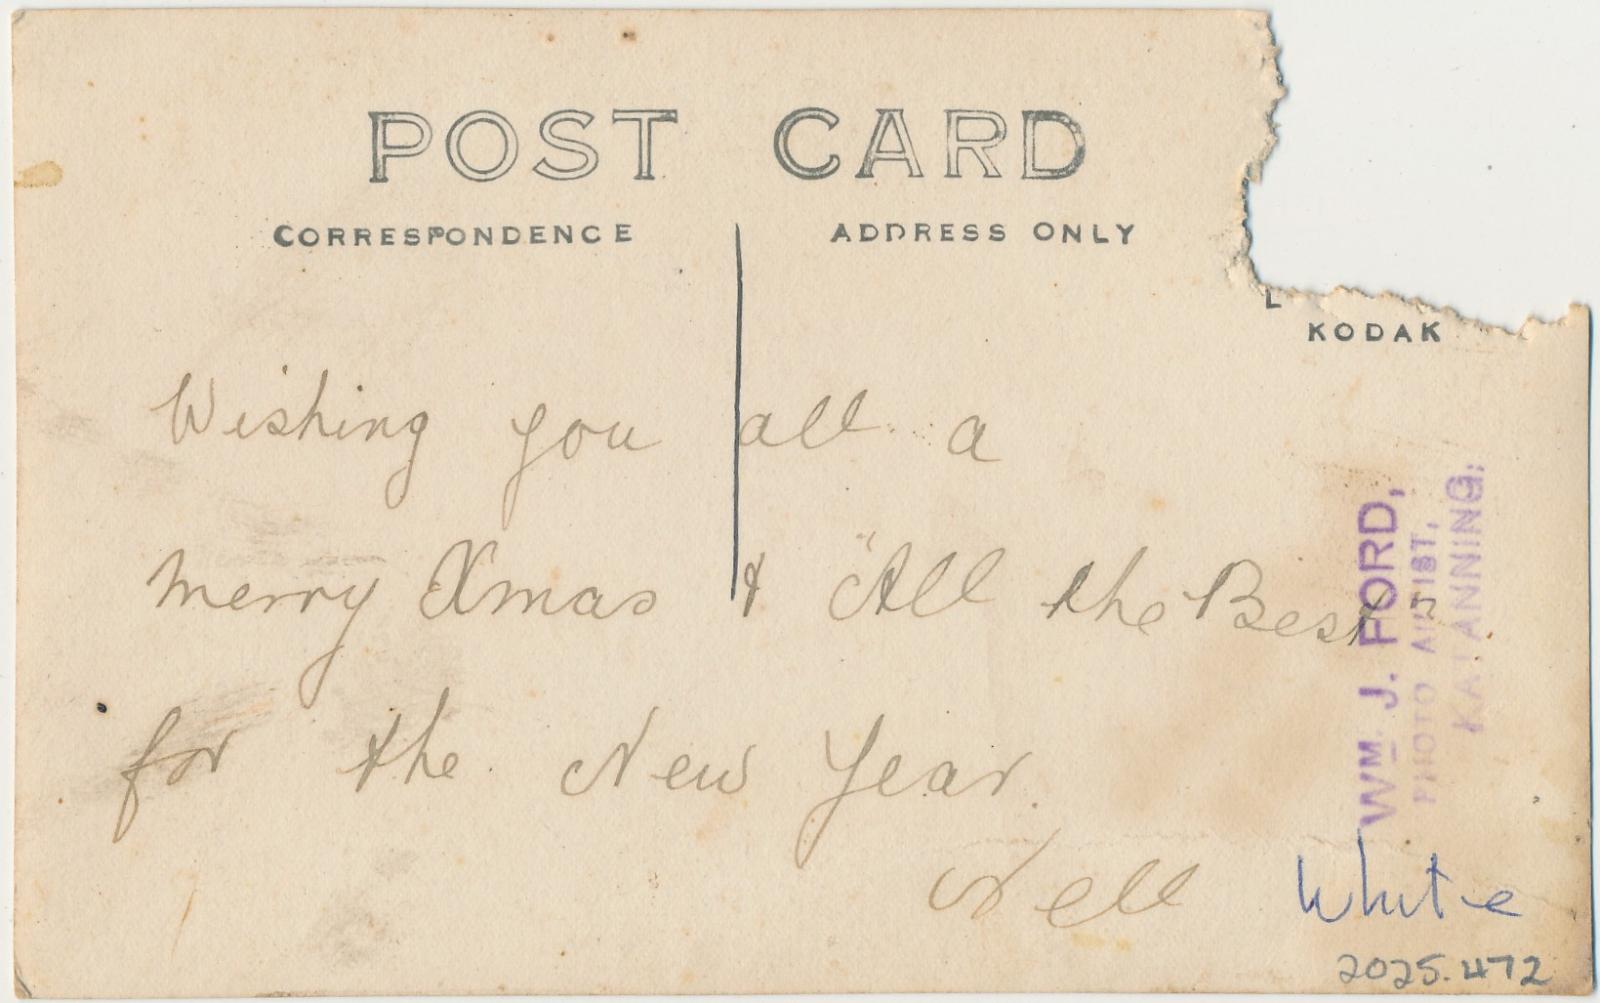 POST CARD
CORRESPONDENCE
ADDRESS ONLY
L
KODAK
Wishing you all a
merry Xmas & "All the Best"
for the New Year.
Nell
White
2025.472
WM. J. FORD,
PHOTO ARTIST,
KATANNING.